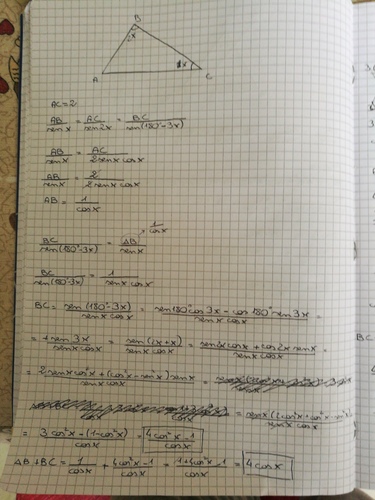 B
2x
A
x
C
AC=2
AB/senx = AC/sen2x = BC/sen(180°-3x)
AB/senx = AC/2senxcosx
AB/senx = 2/2senxcosx
AB = 1/cosx
BC/sen(180°-3x) = AB/senx → 1/cosx
BC/sen(180°-3x) = 1/senxcosx
BC = sen(180°-3x)/senxcosx = sen180°cos3x - cos180°sen3x/senxcosx =
= +sen3x/senxcosx = sen(2x+x)/senxcosx = sen2xcosx + cos2xsenx/senxcosx =
= 2senxcos²x + (cos²x - sen²x)senx/senxcosx =
= senx(2cos²x + cos²x - sen²x)/senxcosx
= 3cos²x - (1-cos²x)/cosx = 4cos²x-1/cosx
AB+BC = 1/cosx + 4cos²x-1/cosx = 1+4cos²x-1/cosx = 4cosx